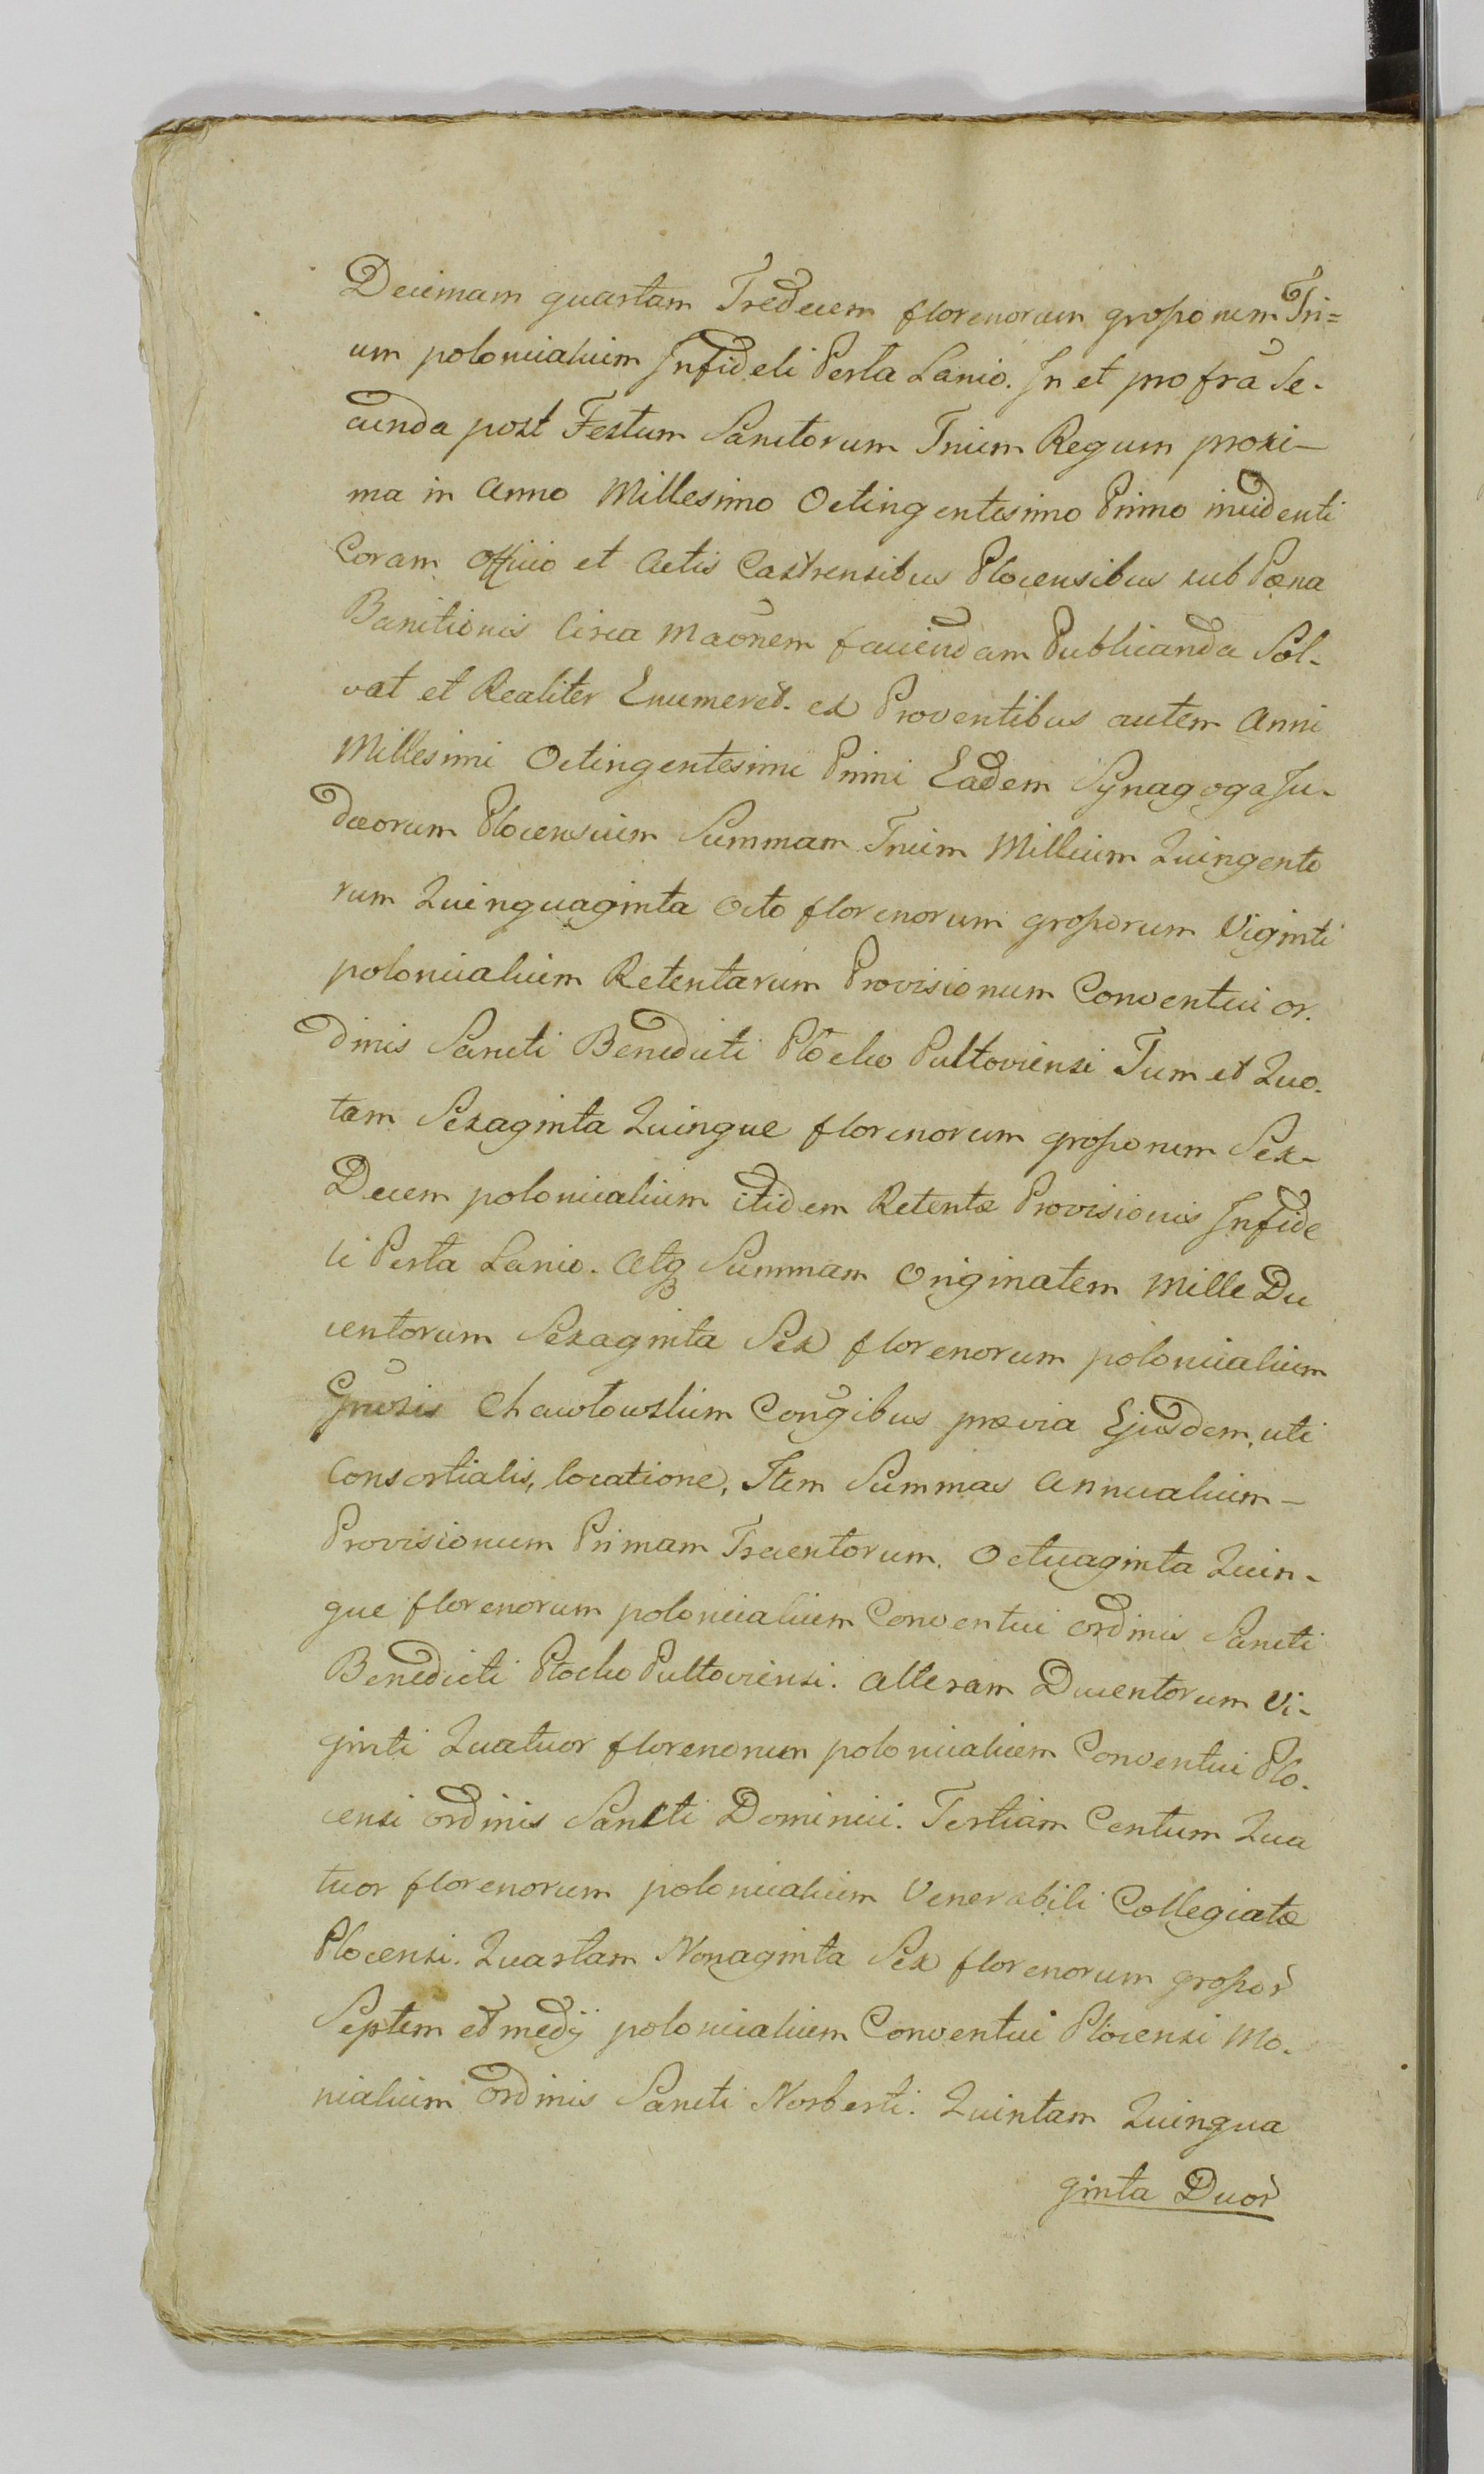 Decimam quartam Tredecem florenorum grossorum Tri=
um polonicalium Infideli Perla Lanio. In et pro fra Se-
cunda post Festum Sanctorum Trium Regum proxi-
ma in Anno Millesimo Octingentesimo Primo incidenti
Coram Officio et Actis Castrensibus Plocensibus sub Pœna
Banitionis Circa maonem faciendam Publicanda Sol-
vat et Realiter Enumeret. ex Proventibus autem Anni
Millesimi Octingentesimi Primi Eadem Synagoga Ju-
dæorum Plocensium Summam Trium Millium Quingento
rum Quinquaginta Octo florenorum grossorum Viginti
polonicalium Retentarum Provisionum Conventui or-
dinis Sancti Benedicti Płocko Pultoviensi Tum et Quo-
tam Sexaginta Quinque florenorum grossorum Sex-
Decem polonicalium itidem Retentæ Provisionis Infide
li Perla Lanio. Atq Summam Originalem Mille Du
centorum Sexaginta Sex florenorum polonicalium
Gnosis Chawłowskim Congibus prævia Ejusdem, uti
Consortialis, locatione, Item Summas Annualium-
Provisionum Primam Trecentorum. Octuaginta Quin-
que florenorum polonicalium Conventui Ordinis Sancti
Benedicti Płocko Pultoviensi. Alteram Ducentorum Vi-
ginti Quatuor florenorum polonicalium Conventui Plo-
censi Ordinis Sancti Dominici. Tertiam Centum Qua
tuor florenorum polonicalium Venerabili Collegiatæ
Plocensi. Quartam Nonaginta Sex florenorum grossor
Septem et medij polonicalium Conventui Plocensi Mo-
nialium Ordinis Sancti Norberti. Quintam Quinqua
ginta Duor